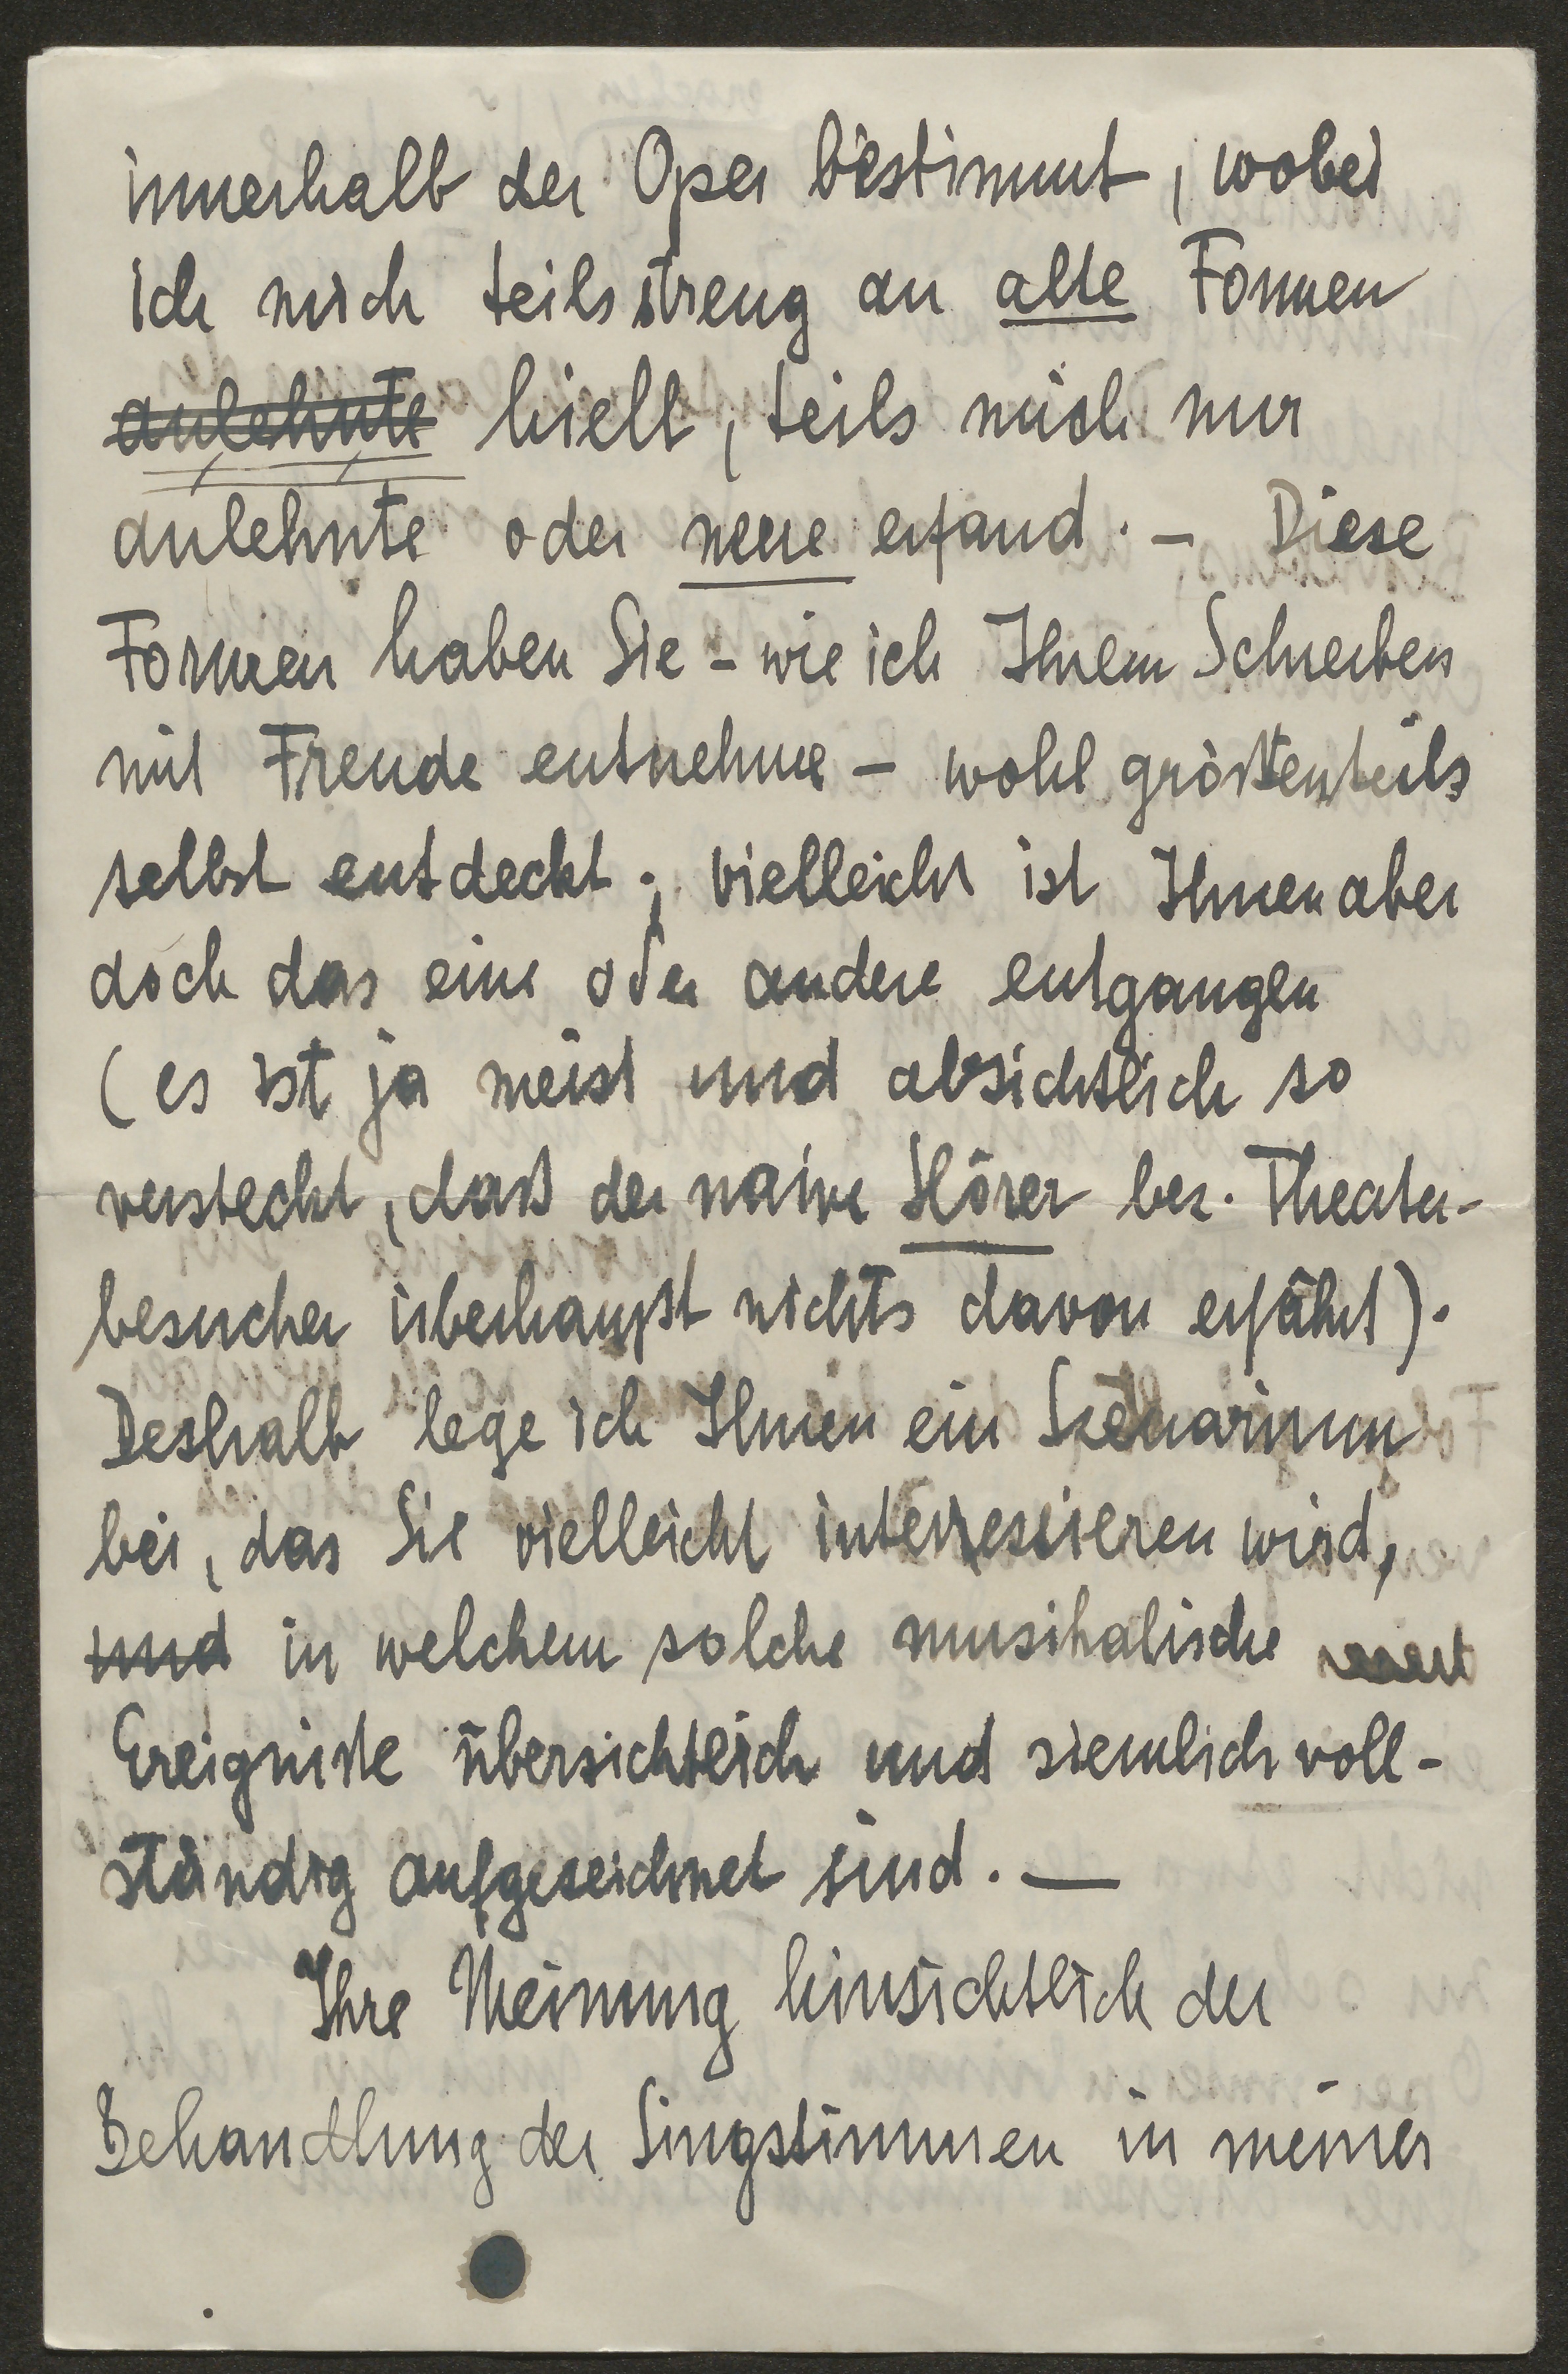 innerhalb der Oper bestimmt, wobei
ich mich teils streng an alte Formen
anlehnte hielt, teils mich nur
anlehnte oder neue erfand. – Diese
Formen haben Sie – wie ich Ihrem Schreiben
mit Freude entnehme – wohl größtenteils
selbst entdeckt; vielleicht ist Ihnen aber
doch das eine oder andere entgangen
(es ist ja meist und absichtlich so
versteckt, daß der naive Hörer bez. Theater-
besucher überhaupt nichts davon erfährt).
Deshalb lege ich Ihnen ein Szenarium
bei, das Sie vielleicht interressieren wird,
und in welchem solche musikalische
Ereigniße übersichtlich und ziemlich voll-
ständig aufgezeichnet sind. —
Ihre Meinung hinsichtlich der
Behandlung der Singstimmen in meiner